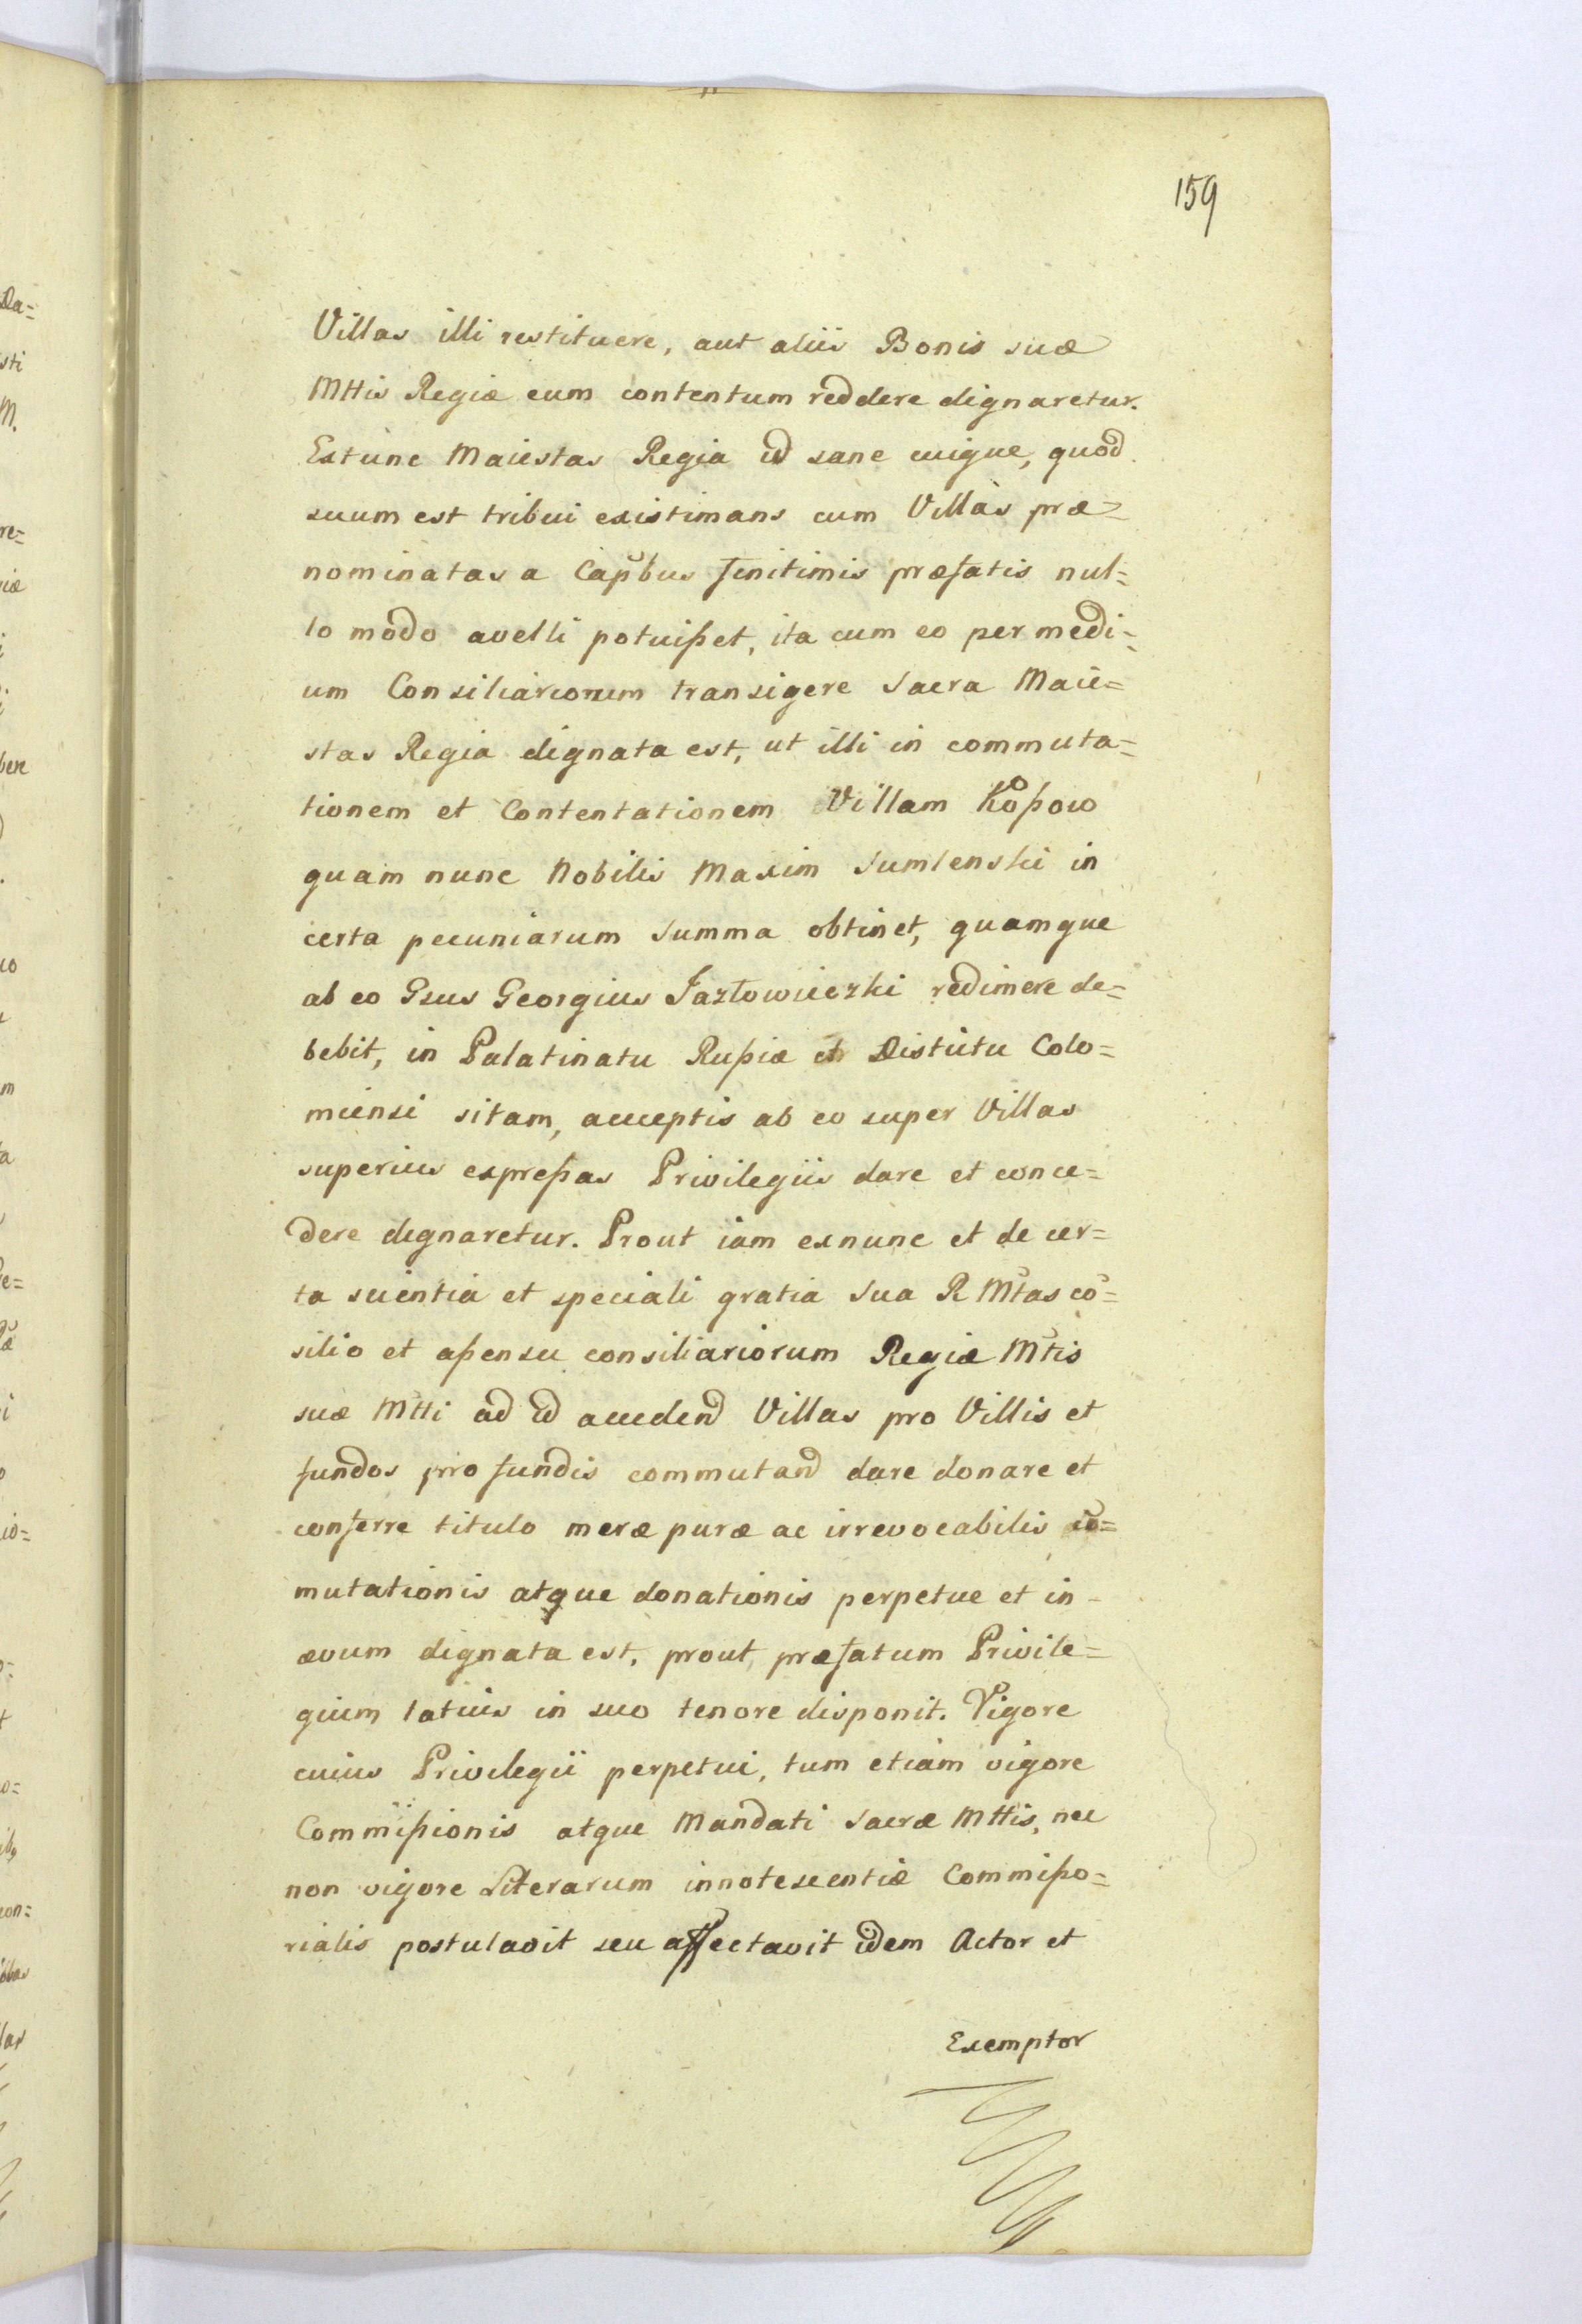 159
Villas illi restituere, aut aliis Bonis suæ
Mttis Regiæ eum contentum reddere dignaretur.
Extunc Maiestas Regia id sane cuique, quod
suum est tribui existimans cum Villas præ=
nominatas a Capbus finitimis præfatis nul=
lo modo avelli potuißet, ita cum eo per medi=
um Consiliariorum transigere Sacra Maie=
stas Regia dignata est, ut illi in commuta=
tionem et Contentationem Villam Koßow
quam nunc Nobilis Maxim Sumlenski in
certa pecuniarum Summa obtinet, quamque
ab eo Gsus Georgius Jazłowieczki redimere de=
bebit, in Palatinatu Rußiæ et Districtu Colo=
miensi sitam, acceptis ab eo super Villas
superius expreßas Privilegiis dare et conce=
dere dignaretur. Prout iam exnunc et de cer=
ta scientia et speciali gratia Sua R Mtas cō=
silio et aßensu consiliariorum Regiæ Mtis
suæ Mtti ad id accedend Villas pro Villis et
fundos pro fundis commutand dare donare et
conferre titulo meræ puræ ac irrevocabilis cō=
mutationis atque donationis perpetue et in
ævum dignata est, prout præfatum Privile=
gium latius in suo tenore disponit. Vigore
cuius Privilegii perpetui, tum etiam vigore
Commißionis atque Mandati Sacræ Mttis, nec
non vigore Literarum innotescentiæ Commißo=
rialis postulavit seu affectavit idem Actor et
Exemptor